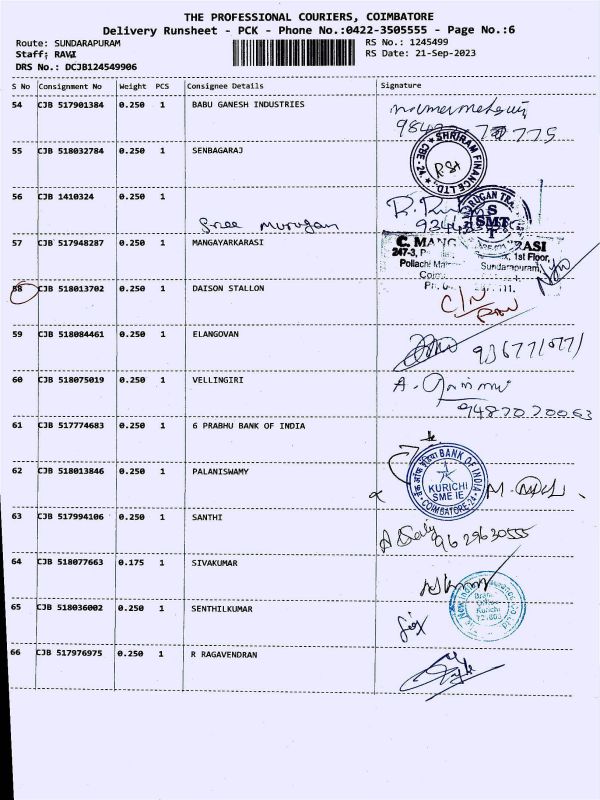 THE PROFESSIONAL COURIERS, COIMBATORE
Delivery Runsheet - PCK - Phone No.:0422-3505555 - Page No.:6
Route: SUNDARAPURAM RS No.: 1245499
Staff: RAVI RS Date: 21-Sep-2023
DRS No.: DCJB124549906
S No Consignment No Weight PCS Consignee Details Signature
54 CJB 517901384 0.250 1 BABU GANESH INDUSTRIES
55 CJB 518032784 0.250 1 SENBAGARAJ
SHRIRAM FINANCE LTD. CBE - 24
56 CJB 1410324 0.250 1
Sree murugan
SMT
57 CJB 517948287 0.250 1 MANGAYARKARASI
1st Floor,
Sundarapuram,
58 CJB 518013702 0.250 1 DAISON STALLON
59 CJB 518084461 0.250 1 ELANGOVAN
9367710771
60 CJB 518075019 0.250 1 VELLINGIRI
9487020063
61 CJB 517774683 0.250 1 6 PRABHU BANK OF INDIA
BANK OF INDIA
KURICHI
SME IE
COIMBATORE-24
62 CJB 518013846 0.250 1 PALANISWAMY
63 CJB 517994106 0.250 1 SANTHI
9629630555
64 CJB 518077663 0.175 1 SIVAKUMAR
65 CJB 518036002 0.250 1 SENTHILKUMAR
Kurichi
66 CJB 517976975 0.250 1 R RAGAVENDRAN